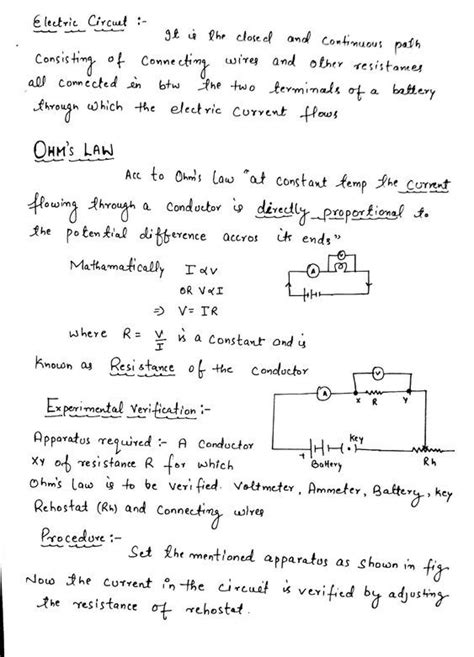 Electric Circuit :-
It is the closed and continuous path
consisting of connecting wires and other resistames
all connected in btw the two terminals of a battery
through which the electric current flows
OHM'S LAW
Acc to Ohm's Law "at constant temp the current
flowing through a conductor is directly proportional to
the potential difference accros its ends"
Mathamatically I ∝ V
OR V ∝ I
⇒ V = IR
A
V
where R = V/I is a constant and is
Known as Resistance of the conductor
V
A
X R Y
Experimental verification :-
Apparatus required :- A Conductor
+ Battery Key
Rh
XY of resistance R for which
Ohm's Law is to be verified. Voltmeter, Ammeter, Battery, key
Rehostat (Rh) and Connecting wires
Procedure :-
Set the mentioned apparatus as shown in fig
Now the current in the circuit is verified by adjusting
the resistance of rehostat.